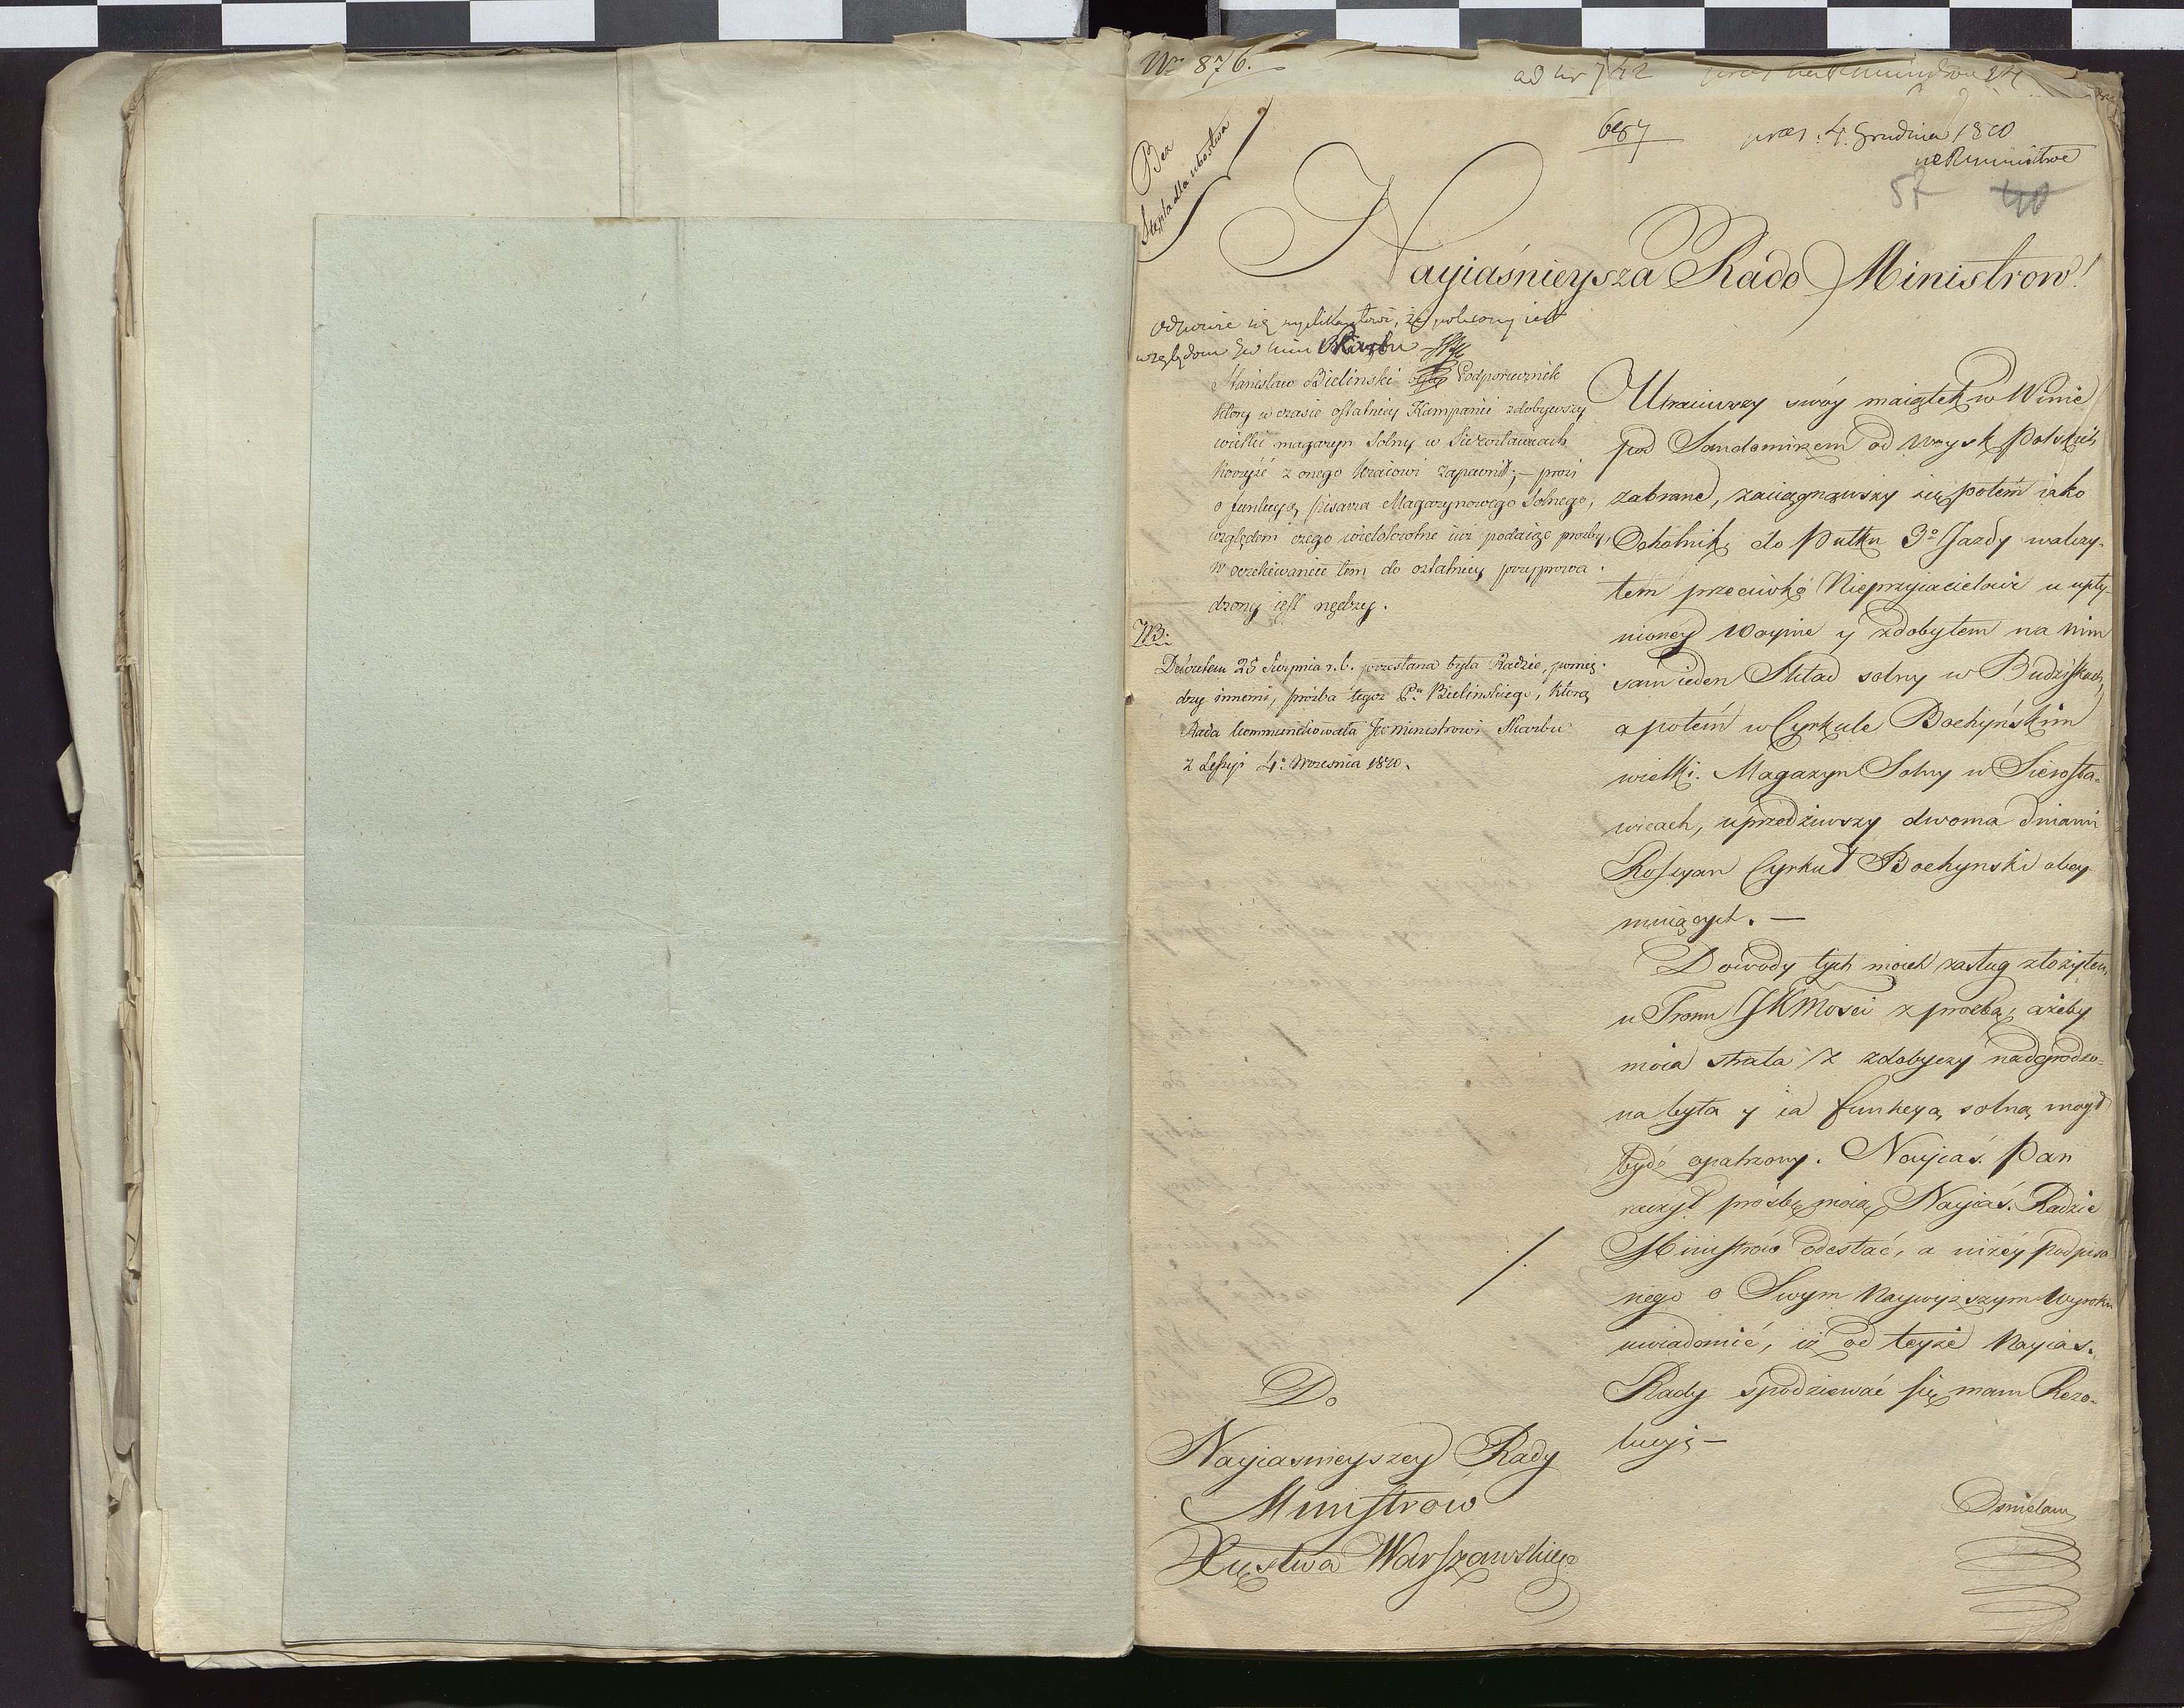 Nr 876.
ad nr 742
687
prez: 4. Grudnia 1810
57 40
Bez
Stępla dla ubostwa
Nayiaśnieysza Rado Ministrow!
odpowie się supplikantowi, że polecony iest
względom JW Min Skarbu
Stanislaw Bielinski Podporucznik
ktory w czasie ostatniey Kampanii zdobywszy
wielki magazyn Solny w Sierosławicach
korzyść z onego kraiowi zapewnił; – prosi
o funkcyą pisarza Magazynowego Solnego,
względem czego wielokrotne iuż podaiąc prozby,
w oczekiwaniu tem do ostatniey przyprowa-
dzony iest nędzy.
NB:
Dekretem 25 Sierpnia r. b. przesłana była Radzie, pomię-
dzy innemi, prożba tegoż Pna Bielinskiego, którą
Rada kommunikowała JW Ministrowi Skarbu
z Sessyi 4o Wrzesnia 1810.
Utraciwszy swóy maiątek w Winie
pod Sandomirzem od Woysk Polskich
zabrane, zaciągnąwszy się potem iako
Ochotnik do Pułku 3o Jazdy walczy-
łem przeciwko Nieprzyiacielowi w upły-
nioney Woynie y zdobyłem na nim
sam ieden Skład solny w Budziskach,
a potem w Cyrkule Bochyńskim
wielki Magazyn Solny w Sierosła-
wicach, uprzedziwszy dwoma dniami
Rossyan Cyrkuł Bochynski obey-
muiących. –
Dowody tych moich zasług złożyłem
u Tronu JKMosci z prozbą, ażeby
moia strata z zdobyczy nadgrodzo-
na była y ia funkcyą solną mogł
bydź opatrzony. Nayiaś. Pan
raczył prośbę moią Nayiaś. Radzie
Ministrów odesłać, a niżey podpisa-
nego o Swym Naywyższym Wyroku
uwiadomić, iż od teyże Nayias.
Rady spodziewać się mam Rezo-
lucyi –
Do
Nayiasnieyszey Rady
Ministrow
Xięstwa Warszawskiego
Osmielam